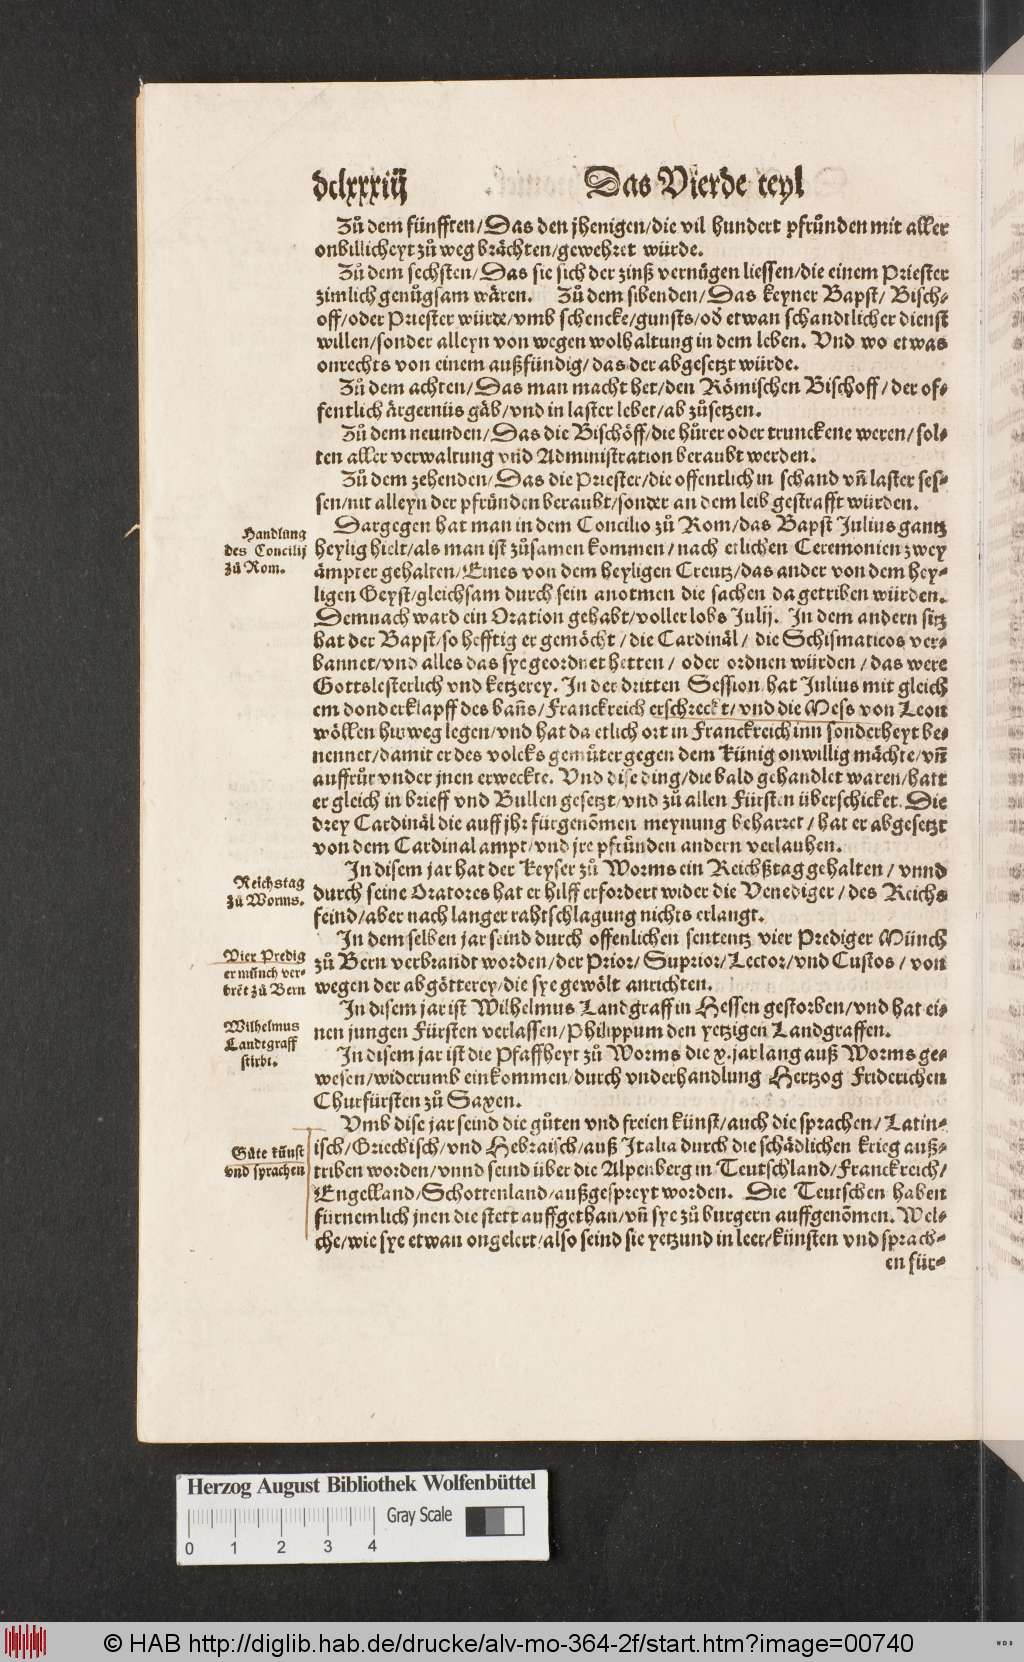 dclxxxiiij Das Vierde teyl
Zů dem fünfften/ Das den jhenigen/ die vil hundert pfrůnden mit aller
onbillicheyt zů weg brächten/ gewehret würde.
Zů dem sechsten/ Das sie sich der zinß vernügen liessen/ die einem Priester
zimlich genůgsam wären. Zů dem sibenden/ Das keyner Bapst/ Bisch-
off/ oder Priester würde/ vmb schencke/ gunsts/ oď etwan schandtlicher dienst
willen/ sonder alleyn von wegen wolhaltung in dem leben. Vnd wo etwas
onrechts von einem außfündig/ das der abgesetzt würde.
Zů dem achten/ Das man macht het/ den Römischen Bischoff/ der of-
fentlich ärgernüs gäb/ vnd in laster lebet/ ab zůsetzen.
Zů dem neunden/ Das die Bischöff/ die hůrer oder trunckene weren/ sol-
ten aller verwaltung vnd Administration beraubt werden.
Zů dem zehenden/ Das die Priester/ die offentlich in schand vñ laster ses-
sen/ nit alleyn der pfründen beraubt/ sonder an dem leib gestrafft würden.
Dargegen hat man in dem Concilio zů Rom/ das Bapst Julius gantz
heylig hielt/ als man ist zůsamen kommen/ nach etlichen Ceremonien zwey
ämpter gehalten/ Eines von dem heyligen Creutz/ das ander von dem hey-
ligen Geyst/ gleichsam durch sein anotmen die sachen da getriben würden.
Demnach ward ein Oration gehabt/ voller lobs Julij. In dem andern sitz
hat der Bapst/ so hefftig er gemöcht/ die Cardinäl/ die Schismaticos ver-
bannet/ vnd alles das sye geordnet hetten/ oder ordnen würden/ das were
Gottslesterlich vnd ketzerey. In der dritten Session hat Julius mit gleich
em donderklapff des bañs/ Franckreich erschreckt/ vnd die Mess von Leon
wöllen hinweg legen/ vnd hat da etlich ort in Franckreich inn sonderheyt be-
nennet/ damit er des volcks gemüter gegen dem Künig onwillig mächte/ vñ
auffrůr vnder jnen erweckte. Vnd dise ding/ die bald gehandlet waren/ hatt
er gleich in brieff vnd Bullen gesetzt/ vnd zů allen Fürsten überschicket. Die
drey Cardinäl die auff jhr fürgenõmen meynung beharret/ hat er abgesetzt
von dem Cardinal ampt/ vnd jre pfründen andern verlauhen.
In disem jar hat der Keyser zů Worms ein Reichßtag gehalten/ vnnd
durch seine Oratores hat er hilff erfordert wider die Venediger/ des Reichs
feind/ aber nach langer rahtschlagung nichts erlangt.
In dem selben jar seind durch offenlichen sententz vier Prediger Münch
zů Bern verbrandt worden/ der Prior/ Suprior/ Lector/ vnd Custos/ von
wegen der abgötterey/ die sye gewölt anrichten.
In disem jar ist Wilhelmus Landgraff in Hessen gestorben/ vnd hat ei-
nen jungen Fürsten verlassen/ Philippum den yetzigen Landgraffen.
In disem jar ist die Pfaffheyt zů Worms die x. jar lang auß Worms ge-
wesen/ widerumb einkommen/ durch vnderhandlung Hertzog Friderichen
Churfürsten zů Saxen.
Vmb dise jar seind die gůten vnd freien künst/ auch die sprachen/ Latin-
isch/ Griechisch/ vnd Hebraisch/ auß Italia durch die schädlichen krieg auß-
triben worden/ vnnd seind über die Alpenberg in Teutschland/ Franckreich/
Engelland/ Schottenland/ außgespreyt worden. Die Teutschen haben
fürnemlich jnen die stett auffgethan/ vñ sye zů burgern auffgenõmen. Wel-
che/ wie sye etwan ongelert/ also seind sie yetzund in leer/ künsten vnd sprach-
en für-
Handlung
des Concilij
zů Rom.
Reichstag
zů Worms.
Vier Predig
er münch ver-
brẽt zů Bern
Wilhelmus
Landtgraff
stirbt.
Gůte künst
vnd sprachen
Herzog August Bibliothek Wolfenbüttel
Gray Scale
0 1 2 3 4
© HAB http://diglib.hab.de/drucke/alv-mo-364-2f/start.htm?image=00740